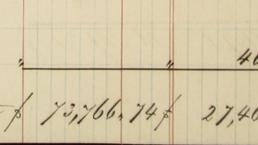 " " 40
$ 73,766.74 $ 27,40